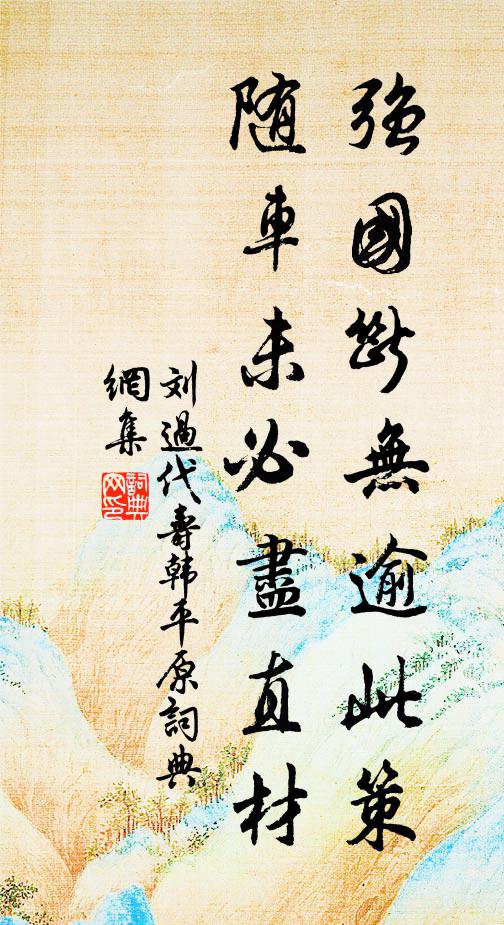 強國斷無逾此策
随車未必盡直材
刘過代壽韩平原詞典
網集
詞典
网印